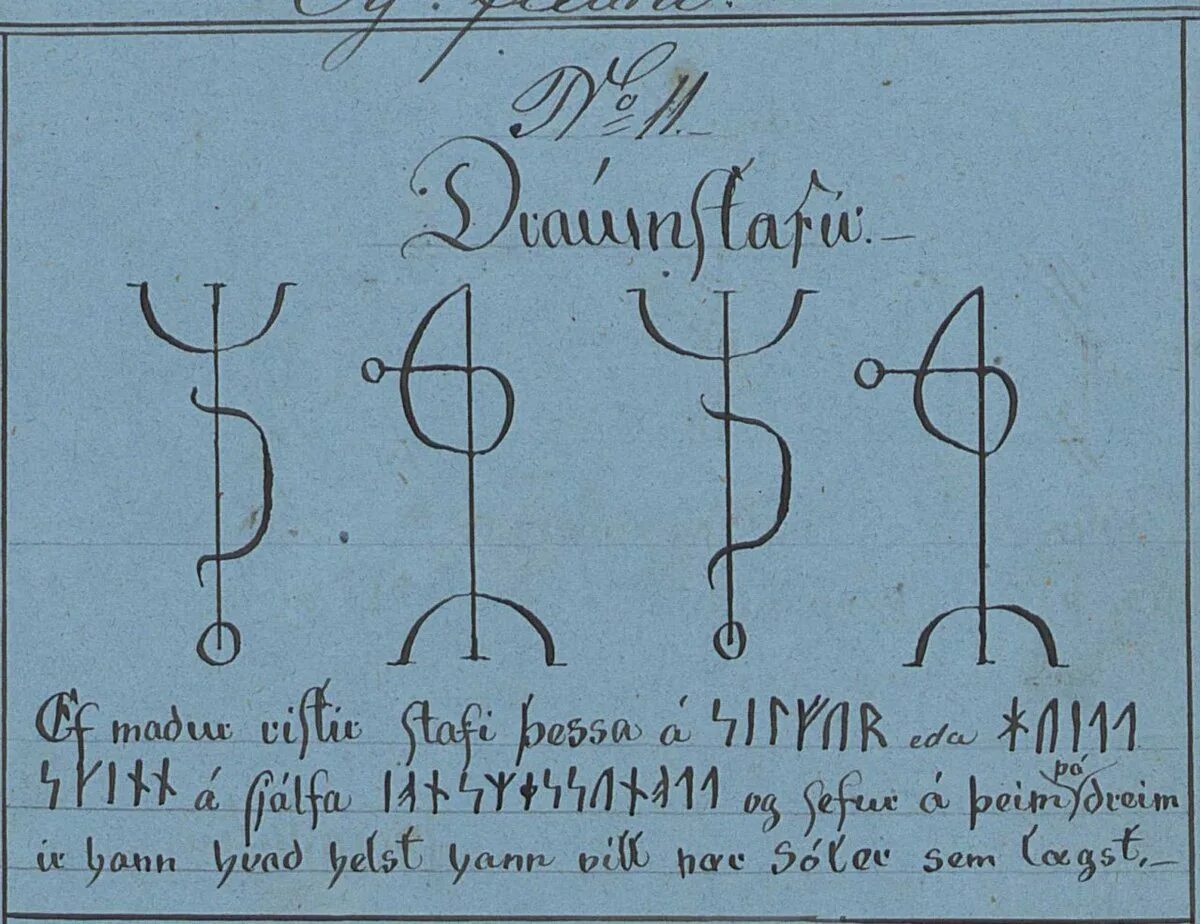 No 11.
Draúmstafir.–
Ef madur ristir stafi þessa á ᛋᛁᛚᚠᚢᚱ eda ᚼᚢᛁᛐᛐ
ᛋᚴᛁᚾᚾ á sjálfa ᛁᚮᚾᛋᛘᛂᛋᛋᚢᚾᚮᛐᛐ og sefur á þeim þá dreim
ir hann hvad helst hann vill nær Sóler sem lægst.–